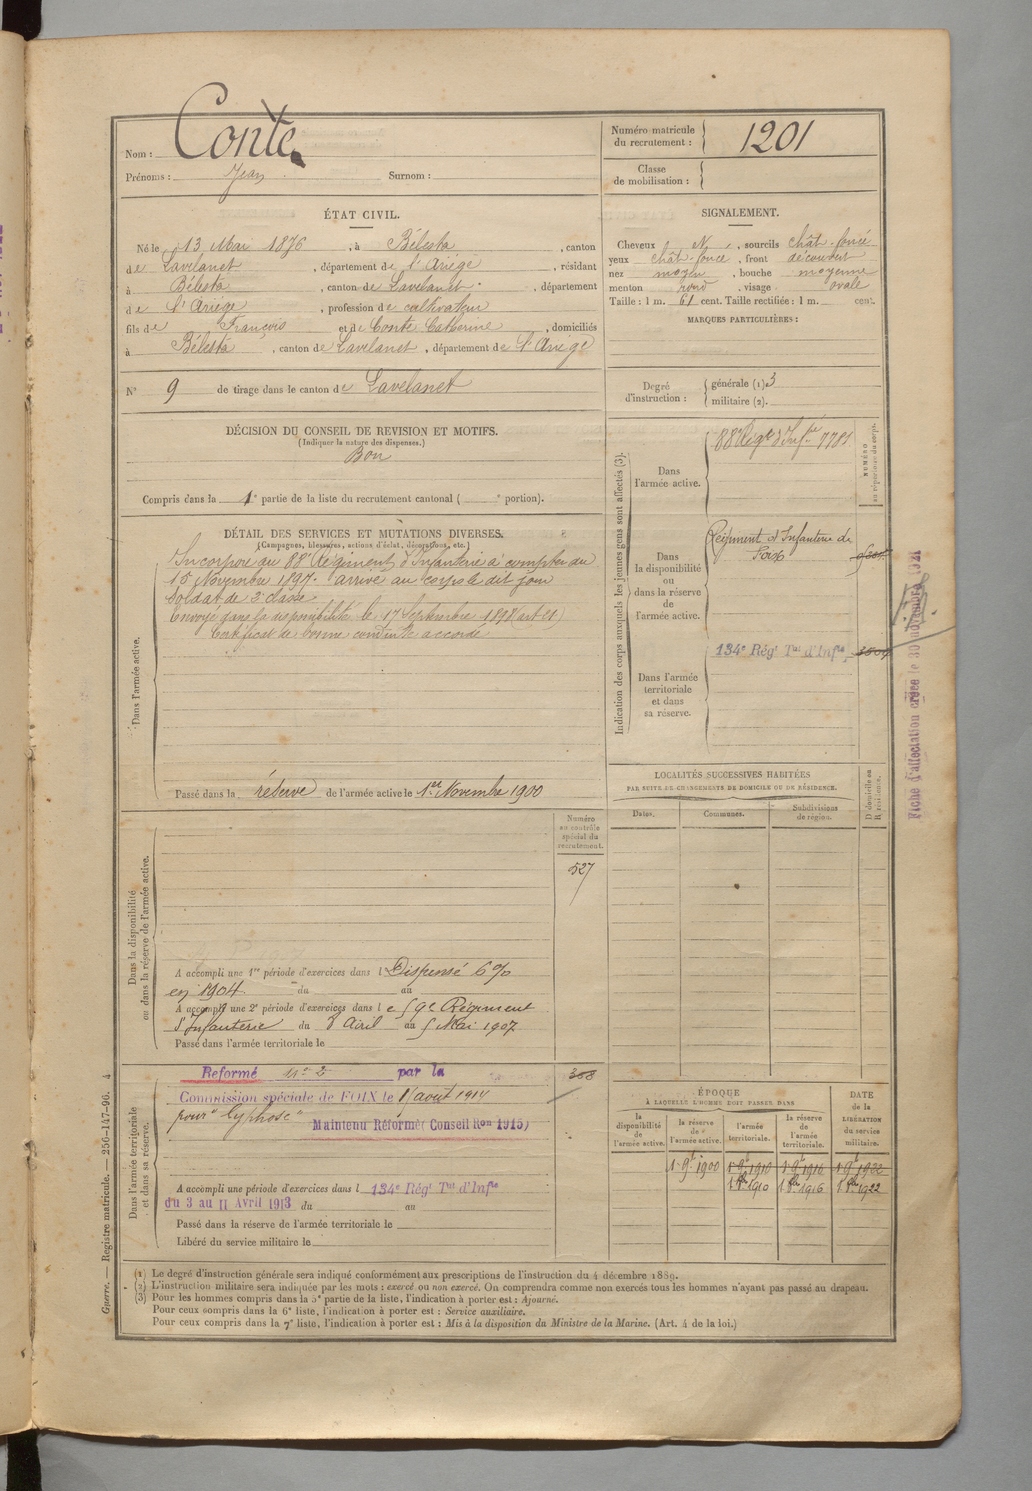 Nom : Conte
Prénoms : Jean Surnom :
Numéro matricule du recrutement : 1201
Classe de mobilisation :
ÉTAT CIVIL.
Né le 13 Mai 1876, à Bélesta, canton
de Lavelanet, département de l'Ariège, résidant
à Bélesta, canton de Lavelanet, département
de l'Ariège, profession de cultivateur
fils de François et de Conte Catherine, domiciliés
à Bélesta, canton de Lavelanet, département de l'Ariège
N° 9 de tirage dans le canton de Lavelanet
SIGNALEMENT.
Cheveux N., sourcils chât-foncé
yeux chât-foncé, front découvert
nez moyen, bouche moyenne
menton rond, visage ovale
Taille : 1 m. 61 cent. Taille rectifiée : 1 m. cent.
MARQUES PARTICULIÈRES :
Degré d'instruction : générale (1) 3
militaire (2).
DÉCISION DU CONSEIL DE REVISION ET MOTIFS.
(Indiquer la nature des dispenses.)
Bon
Compris dans la 1e partie de la liste du recrutement cantonal ( e portion).
DÉTAIL DES SERVICES ET MUTATIONS DIVERSES.
(Campagnes, blessures, actions d'éclat, décorations, etc.)
Dans l'armée active.
Incorporé au 88e Régiment d'Infanterie à compter du
15 Novembre 1897. arrivé au corps le dit jour
Soldat de 2e classe
Envoyé dans la disponibilité le 17 Septembre 1898 (art 21)
Certificat de bonne conduite accordé
Passé dans la réserve de l'armée active le 1er Novembre 1900
Indication des corps auxquels les jeunes gens sont affectés (3).
NUMÉRO au répertoire du corps.
Dans l'armée active.
88e Régt d'Infie 7781
Dans la disponibilité ou dans la réserve de l'armée active.
Régiment d'Infanterie de
Foix
Dans l'armée territoriale et dans sa réserve.
134e Régt Tal d'Infie
Fiche d'affectation créée le 30 novembre 1921
LOCALITÉS SUCCESSIVES HABITÉES
PAR SUITE DE CHANGEMENTS DE DOMICILE OU DE RÉSIDENCE.
Dates. Communes. Subdivisions de région. D. domicile ou R. résidence.
Dans la disponibilité ou dans la réserve de l'armée active.
Numéro au contrôle spécial du recrutement.
527
A accompli une 1re période d'exercices dans l Dispensé 6%
en 1904 du au
A accompli une 2e période d'exercices dans l e 59e Régiment
d'Infanterie du 8 Avril au 5 Mai 1907
Passé dans l'armée territoriale le
Dans l'armée territoriale et dans sa réserve.
Reformé n° 2 par la
Commission spéciale de FOIX le 1 août 1914
pour "Cyphose"
Maintenu Réformé (Conseil Ron 1915)
388
A accompli une période d'exercices dans l 134e Régt Tal d'Infie
du 3 au 11 Avril 1913 du au
Passé dans la réserve de l'armée territoriale le
Libéré du service militaire le
ÉPOQUE
À LAQUELLE L'HOMME DOIT PASSER DANS
la disponibilité de l'armée active. la réserve de l'armée active. l'armée territoriale. la réserve de l'armée territoriale.
DATE de la LIBÉRATION du service militaire.
1 9bre 1900 1 9bre 1910 1 9bre 1916 1 9bre 1922
1 8bre 1910 1 8bre 1916 1 8bre 1922
(1) Le degré d'instruction générale sera indiqué conformément aux prescriptions de l'instruction du 4 décembre 1889.
(2) L'instruction militaire sera indiquée par les mots : exercé ou non exercé. On comprendra comme non exercés tous les hommes n'ayant pas passé au drapeau.
(3) Pour les hommes compris dans la 5e partie de la liste, l'indication à porter est : Ajourné.
Pour ceux compris dans la 6e liste, l'indication à porter est : Service auxiliaire.
Pour ceux compris dans la 7e liste, l'indication à porter est : Mis à la disposition du Ministre de la Marine. (Art. 4 de la loi.)
Guerre. — Registre matricule. — 256-147-96. 4